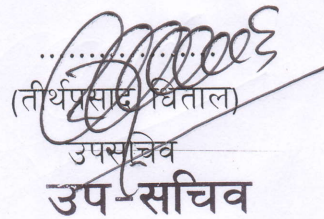 ....................
(तीर्थप्रसाद धिताल)
उपसचिव
उप-सचिव